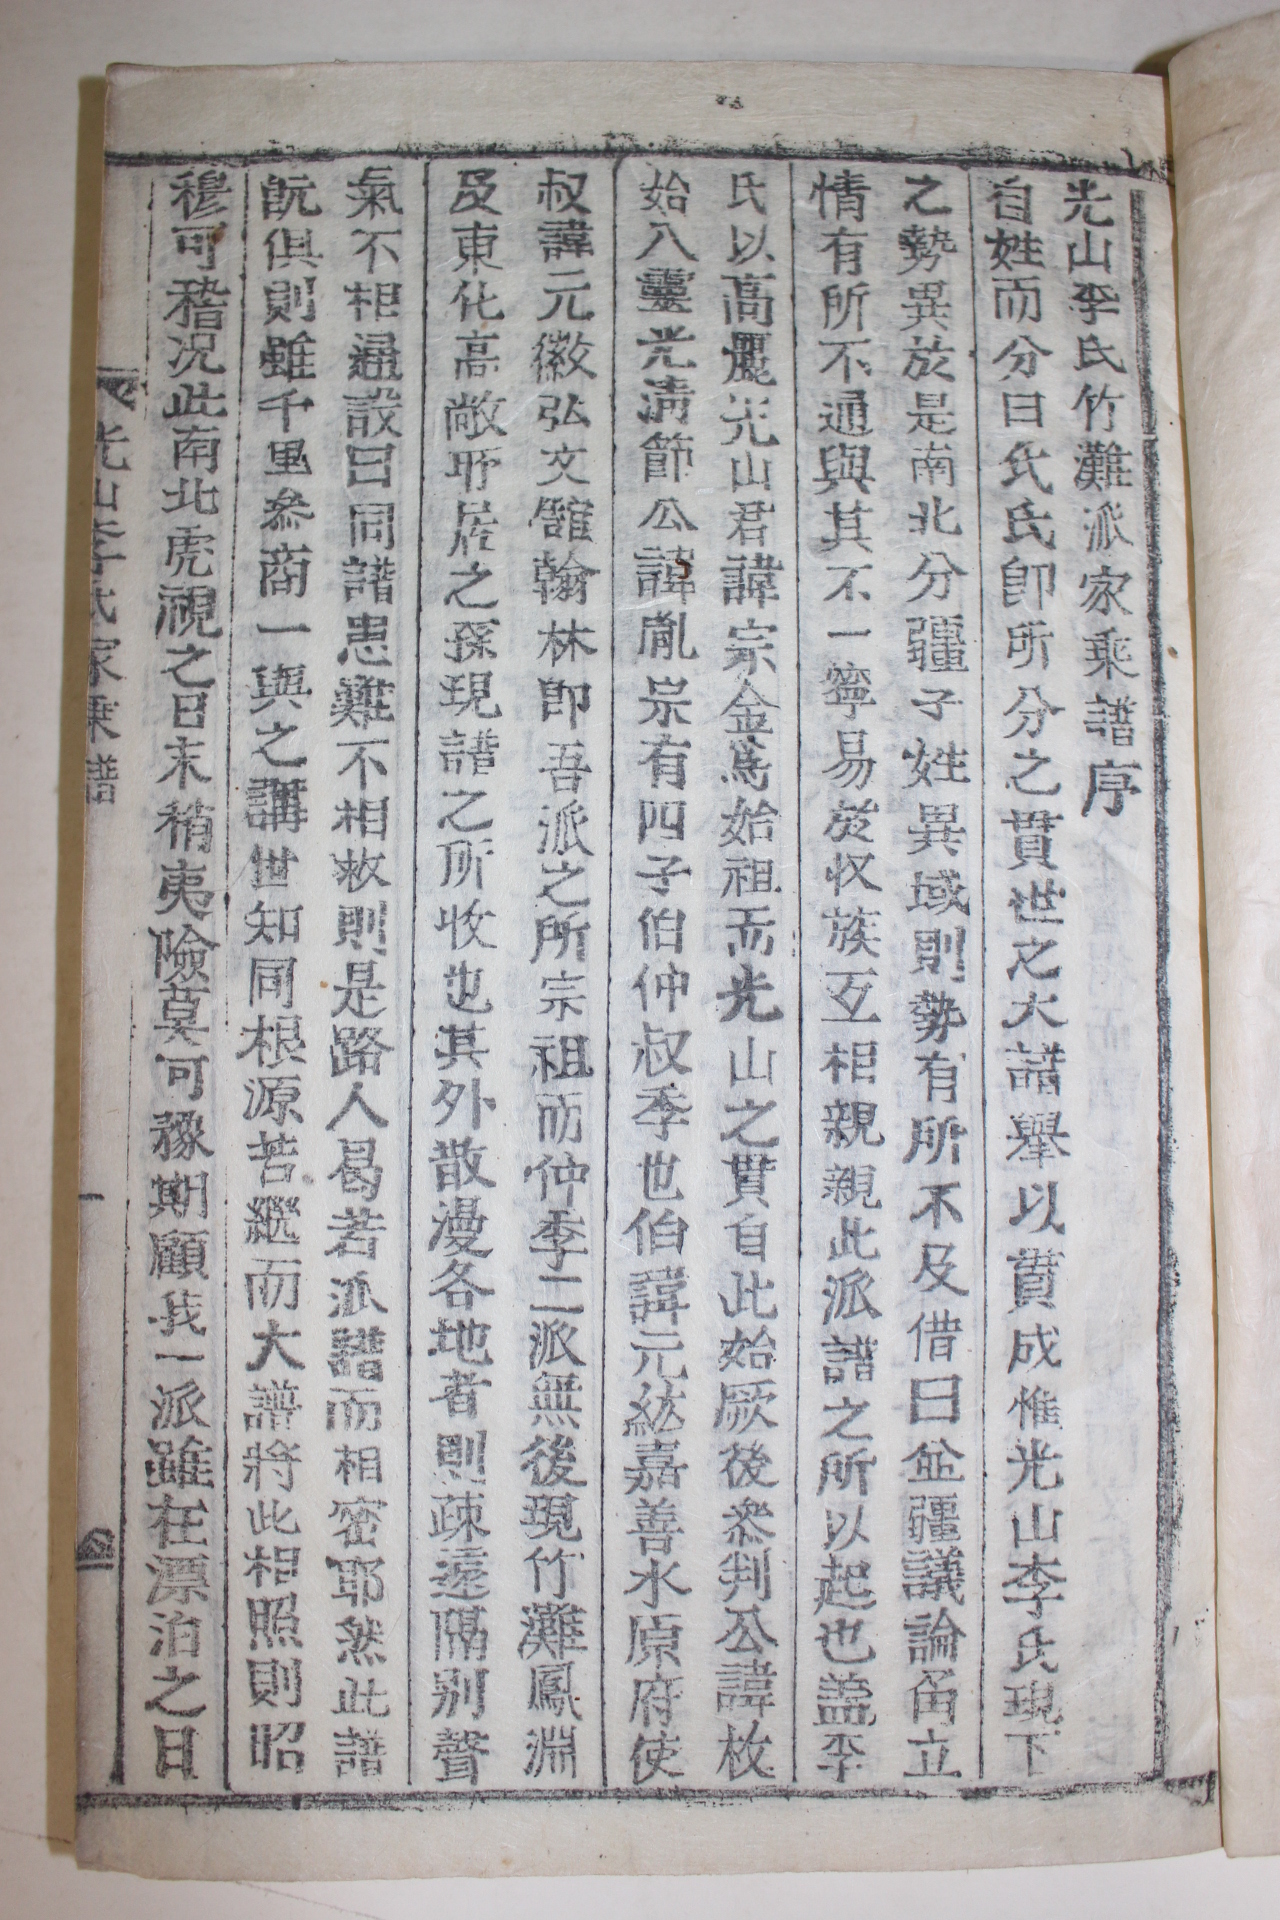 光山李氏竹灘派家乘譜序
自姓而分曰氏氏卽所分之貫世之大譜擧以貫成惟光山李氏現下
之勢異於是南北分疆子姓異域則勢有所不及借曰並疆議論角立
情有所不通與其不一寧易於收族互相親親此派譜之所以起也盖李
氏以高麗光山君諱宗金爲始祖而光山之貫自此始厥後參判公諱枚
始入靈光淸節公諱胤宗有四子伯仲叔季也伯諱元紘嘉善水原府使
叔諱元徽弘文舘翰林卽吾派之所宗祖而仲季二派無後現竹灘鳳淵
及東化高敞所居之孫現譜之所收也其外散漫各地者則疎遠隔別聲
氣不相通設曰同譜患難不相救則是路人曷若派譜而相密耶然此譜
旣俱則雖千里參商一與之講世知同根源若繼而大譜將此相照則昭
穆可稽况此南北虎視之日未稍夷險莫可豫期顧我一派雖在漂泊之日
光山李氏家乘譜
一